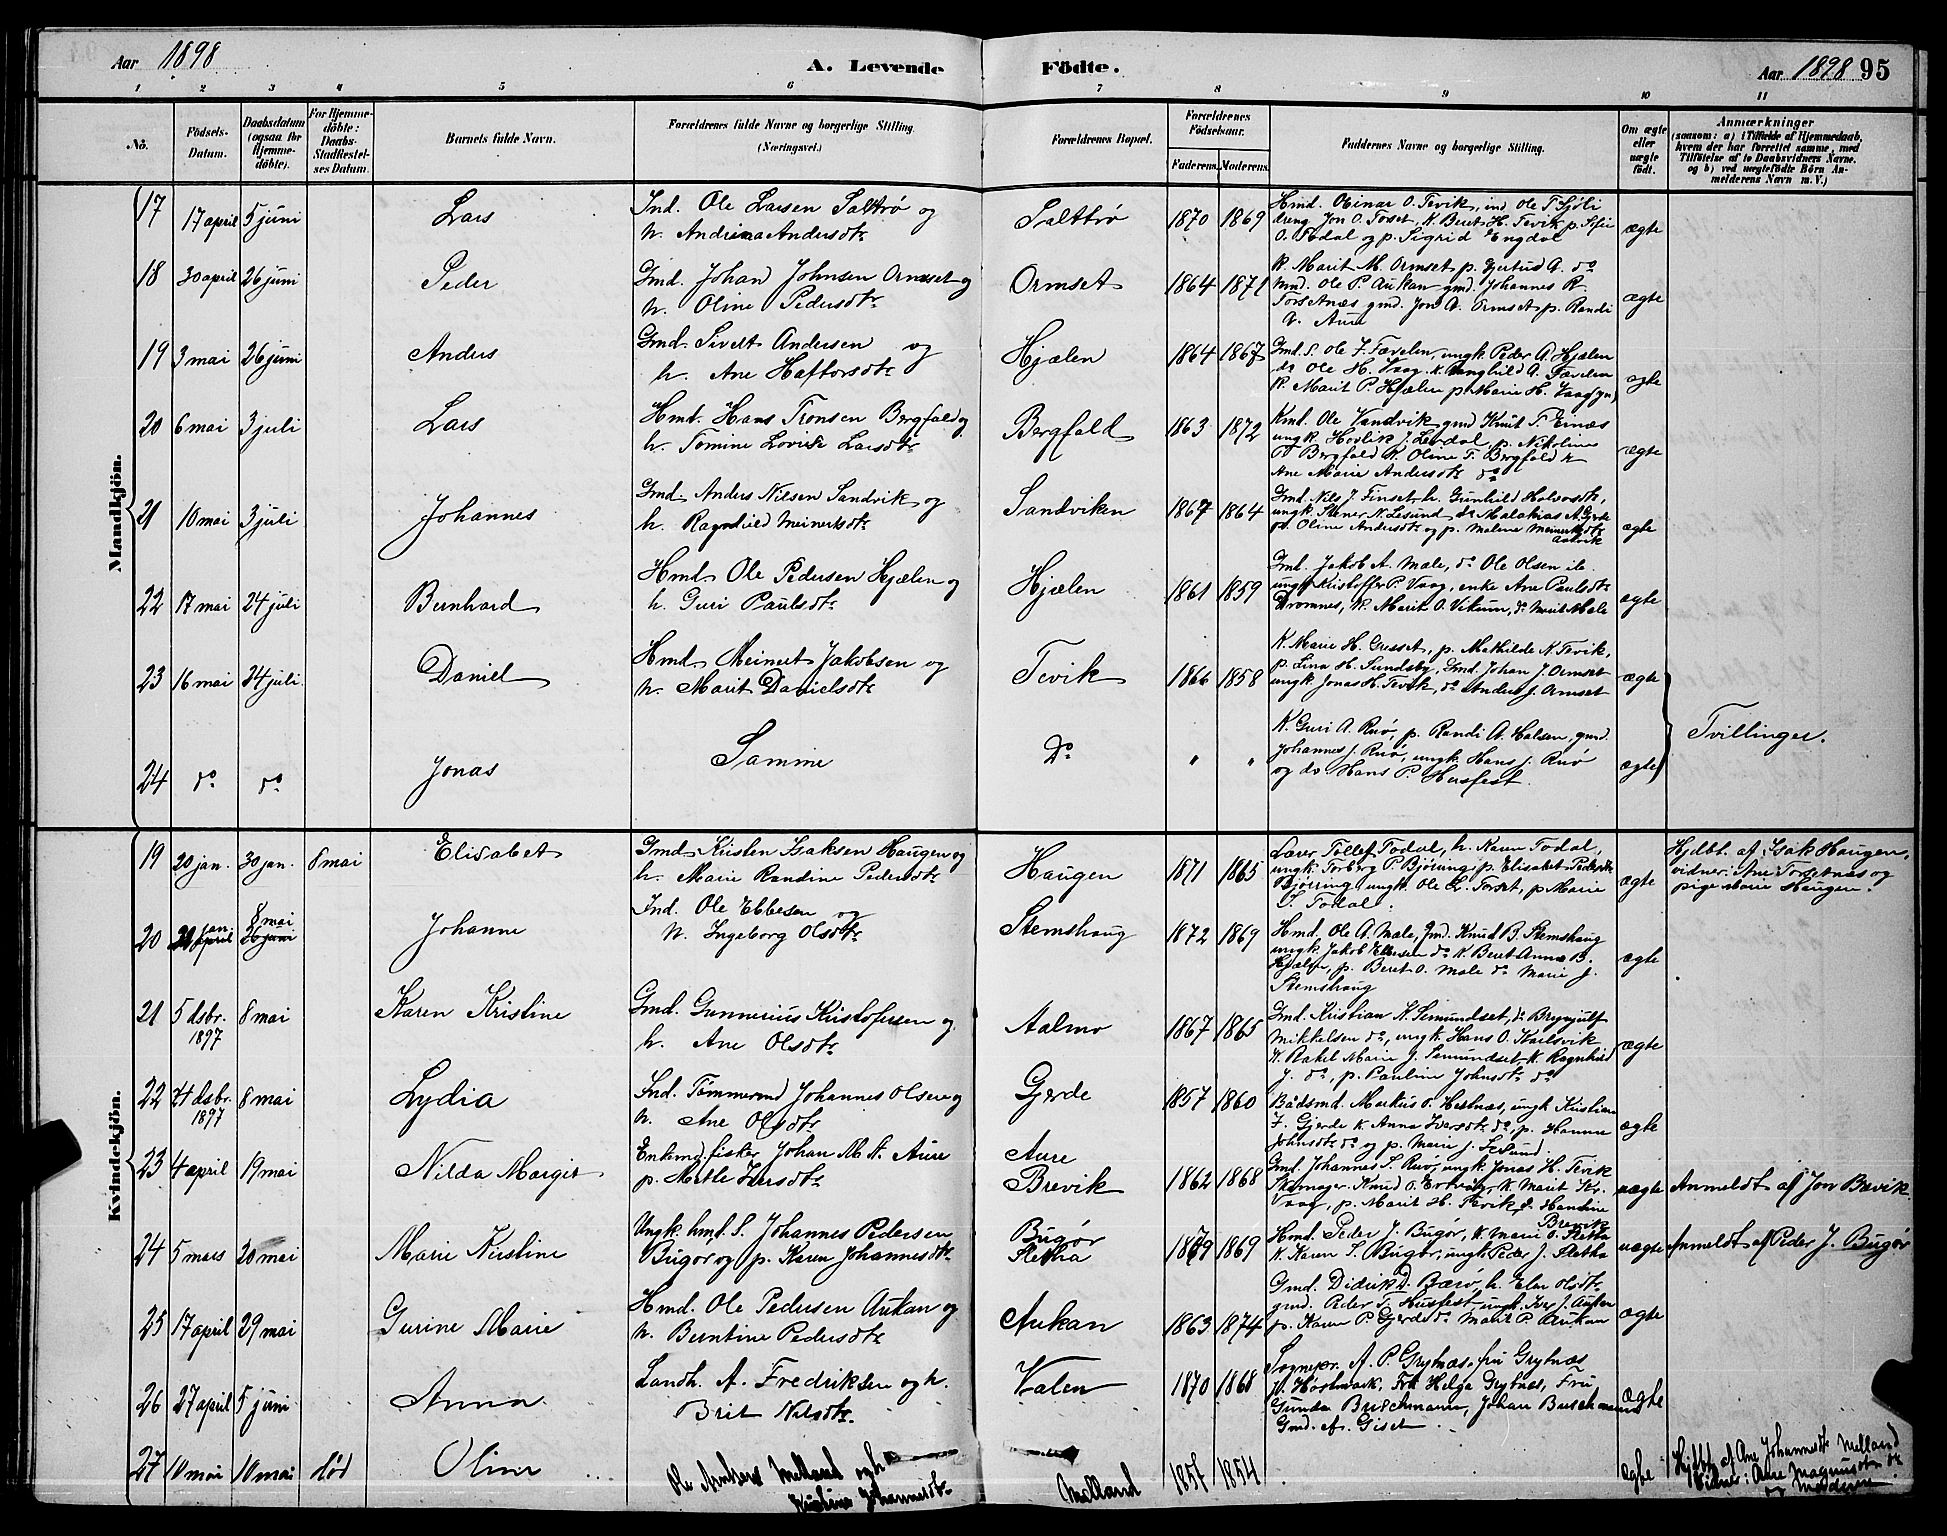 Aar 1898 A. Levende Födte. Aar 1898 95
1 2 3 4 5 6 7 8 9 10 11
No.
Födsels-Datum.
Daabsdatum (ogsaa for Hjemmedöbte).
For Hjemmedöbte: Daabs-Stadfæstelses Datum.
Barnets fulde Navn.
Forældrenes fulde Navne og borgerlige Stilling. (Næringsvei.)
Forældrenes Bopæl.
Forældrenes Födselsaar.
Faderens. Moderens.
Faddernes Navne og borgerlige Stilling.
Om ægte eller uægte födt.
Anmærkninger
(saasom: a) i Tilfælde af Hjemmedaab,
hvem der har forrettet samme, med
Tilföielse af to Daabsvidners Navne,
og b) ved uægtefödte Börn Anmelderens Navn m. V.)
Mandkjön.
17 17 april 5 juni Lars Ind. Ole Larsen Saltrø og
h. Andrina Andersdtr Saltrø 1870 1869 ægte
Hmd. Einar O. Tevik, ind Ole T Sjøli
dreng Jon O. Torset, K. Beret H. Tevik p. Sofie
O. Todal og p. Sigrid Engdal
18 30 april 26 juni Peder Gmd. Johan Johnsen Ormset og
h. Oline Pedersdtr Ormset 1864 1871 ægte
K. Marit M. Ormset p. Gjertrud A. do
Ind. Ole P. Aukan gmd. Johannes R.
Torsetnæs gmd. Jon A. Ormset p. Randi
A. Aure
19 3 mai 26 juni Anders Gmd. Sivert Andersen og
h. Ane Haftorsdtr Hjælen 1864 1867 ægte
Gmd. S. Ole J. Tævelen, ungk Peder A. Hjælen
do Ole H. Vaag K. Ragnhild A. Tævelen
K. Marit P. Hjælen p. Marie H. Vaag
20 6 mai 3 juli Lars Hmd. Hans Tronsen Bergfald og
h. Tomine Lovise Larsdtr Bergfald 1863 1872 ægte
Kmd. Ole Vandvik gmd Knut T. Ernæs
ungk. J. Lerdal, p. Nikoline
Bergfald K. Oline T. Bergfald
Ane Marie Andersdtr do
21 10 mai 3 juli Johannes Gmd. Anders Nilsen Sandvik og
h. Ragnhild Meinersdtr Sandviken 1867 1864 ægte
Gmd. Nils J. Finset, h. Gunhild Halvorsdtr,
ungk. Stener N. Lesund, do Malakias A. Gjerde
p. Oline Andersdtr og p. Malene Meinersdtr
Aasvik
22 17 mai 24 juli Bernhard Hmd. Ole Pedersen Hjælen og
h. Guri Paulsdtr Hjælen 1861 1859 ægte
Gmd. Jakob A. Male, do Ole Olsen ib.
ungk Kristoffer P. Vaag, enke Ane Paulsdtr
Dromnes, K. Marit O. Vikum, do Marit Male
23 16 mai 24 juli Daniel Hmd. Meinert Jakobsen og
h. Marit Danielsdtr Tevik 1866 1858 ægte
K. Marie H. Gusset, p. Mathilde N. Tevik,
p. Lina H. Sundsby, Gmd. Johan J. Ormset
ungk. Jonas H. Tevik, do Anders J. Ormset
24 do do Jonas Samme Do " " ægte Tvillinger.
K. Guri A. Ruø, p. Randi A. Halsen, gmd.
Johannes J. Ruø, ungk. Hans J. Ruø
og do Hans P. Husfest.
Kvindekjön.
19 20 jan. 30 jan. 8 mai Elisabet Gmd. Kristen Isaksen Haugen og
h. Marie Randine Pedersdtr Haugen 1871 1865 ægte
Lærer Tollef Todal, h. Karen Todal,
ungk. Torberg P. Bjøring p. Elisabet Pedersdtr
Bjøring, ungk. Ole Gr. Torset, p. Marie
S. Todal.
Hjdbt. af Isak Haugen,
vidner: Ane Torsetnæs og
pige Marie Haugen.
20 21 jan april 8 mai 26 juni Johanne Ind. Ole Ebbesen og
h. Ingeborg Olsdtr Stemshaug 1872 1869 ægte
Hmd. Ole A. Male, Gmd. Knud B. Stemshaug
ungk. Jakob Ellersen do K. Beret Anna B.
Hjælen, p. Beret O. Male do Marie J.
Stemshaug
21 5 dsbr. 1897 8 mai Karen Kristine Gmd. Gunnerius Kristofersen og
h. Ane Olsdtr Aalmo 1867 1865 ægte
Gmd. Kristian K. Semundset, do Brynjulf
Mikkelsen do, ungk. Hans O. Karlsvik
K. Rakel Marie J. Semundset, K. Ragnhild
J. do, p. Pauline Johnsdtr do
22 4 dsbr. 1897 8 mai Lydia Ind. Tømmermd Johannes Olsen og
h. Ane Olsdtr Gjerde 1857 1860 ægte
Bådsmd. Markus O. Hestnæs, ungk Kristian
F. Gjerde K. Anna Iversdtr do, p. Hanna
Johnsdtr do og p. Marie J. Lesund.
23 4 april 19 mai Nilda Margit Enkemd. fisker Johan M. K. Aure
p. Mette Iversdtr Aure Brevik 1862 1868 uægte Anmeldt af Jon Brevik.
Gmd. Johannes S. Ruø, ungk. Jonas H. Tevik
Skomager Knud O. Ertvåg, K. Marit Kr.
Vaag, p. Marit H. Tevik, do Handine
Brevik
24 5 mars 20 mai Marie Kirstine Ungk. hmd. S. Johannes Pedersen
Bugør og p. Karen Johannesdtr Bugør Sletha 1879 1869 uægte Anmeldt af Peder J. Bugør
Hmd. Peder J. Bugør, K. Marie O. Sletha
K. Karen S. Bugør, ungk Peder J. Sletha
25 17 april 29 mai Gurine Marie Hmd. Ole Pedersen Aukan og
h. Berntine Pedersdtr Aukan 1863 1874 ægte
Gmd. Didrik D. Bærø, h. Elen Olsdtr
gmd. Peder T. Husfest, ungk. Iver J. Aukan
p. Karen P. Gjerde do Marit P. Aukan
26 27 april 5 juni Anna Landh. A. Fredriksen og h.
Brit Nilsdtr. Valen 1870 1868 ægte
Sognepr. A. P. Grytnæs, fru Grytnæs
Høstmark, Frk Helga Grytnæs, Fru
Gunda Buschmann, Johan Buschmann
Gmd. A. Giset.
27 10 mai 10 mai død Oline Ole Anders Melland og h
Kristine Johannesdtr Melland 1857 1854 ægte
Hjdbt. af Ane Johannesdtr Melland
Vidner: Ane Magnusdtr do
og Moderen